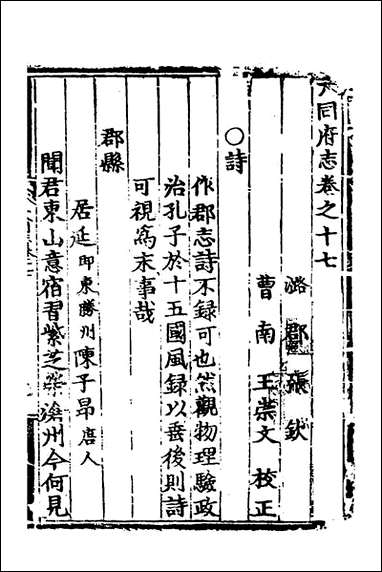 大同府志卷之十七
潞郡張欽
曹南王崇文校正
○詩
作郡志詩不録可也然觀物理驗政
治孔子於十五國風録以垂後則詩
可視爲末事哉
郡縣
居延即東勝州陳子昂唐人
聞君東山意宿習紫芝榮滄州今何見